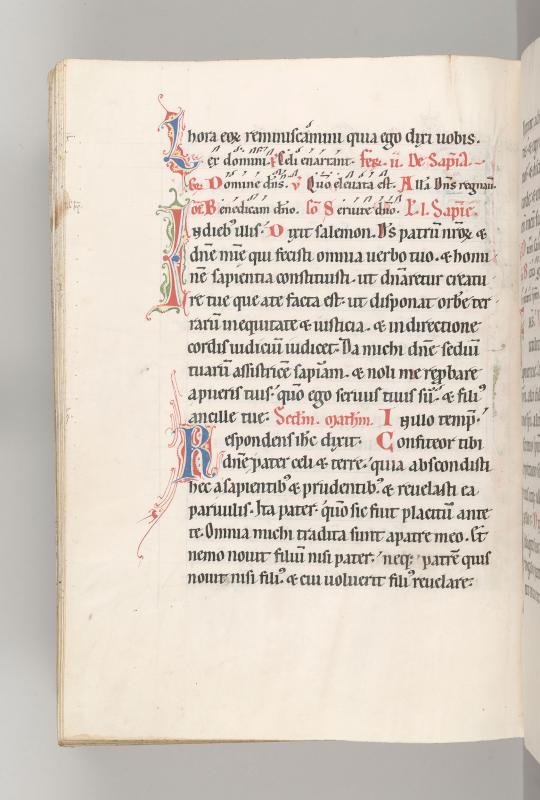 hora eoꝝ reminiscamini quia ego dixi uobis.
Lex domini. Celi enarrant. fer. ii. De Sapia.
Domine dn̄s. Quo eleuata est. Alla Dn̄s regnauit.
Of. Benedicam dn̄o. Co Seruite dn̄o. L. l. Sapie.
In dieb' illis. Dixit salemon. D's patrū nr̄oꝝ ⁊
dn̄e mīe qui fecisti omnia uerbo tuo. ⁊ homi
nē sapientia constituisti. ut dn̄aretur creatu
re tue que a te facta est. ut disponat orbē ter
rarū in equitate ⁊ iusticia. ⁊ in directione
cordis iudiciū iudicet. Da michi dn̄e sediū
tuarū assistricē sapiam. ⁊ noli me reprbare
a pueris tuis. quō ego seruus tuus sū. ⁊ fili'
ancille tue. Scdm. mathm. In illo temp.
Respondens ihc dixit. Confiteor tibi
dn̄e pater celi ⁊ terre. quia abscondisti
hec a sapientib' ⁊ prudentib'. ⁊ reuelasti ea
paruulis. Ita pater. quō sic fuit placitū ante
te. Omnia michi tradita sunt a patre meo. Et
nemo nouit filiū nisi pater. neqꝫ patrē quis
nouit nisi fili'. ⁊ cui uoluerit fili' reuelare.